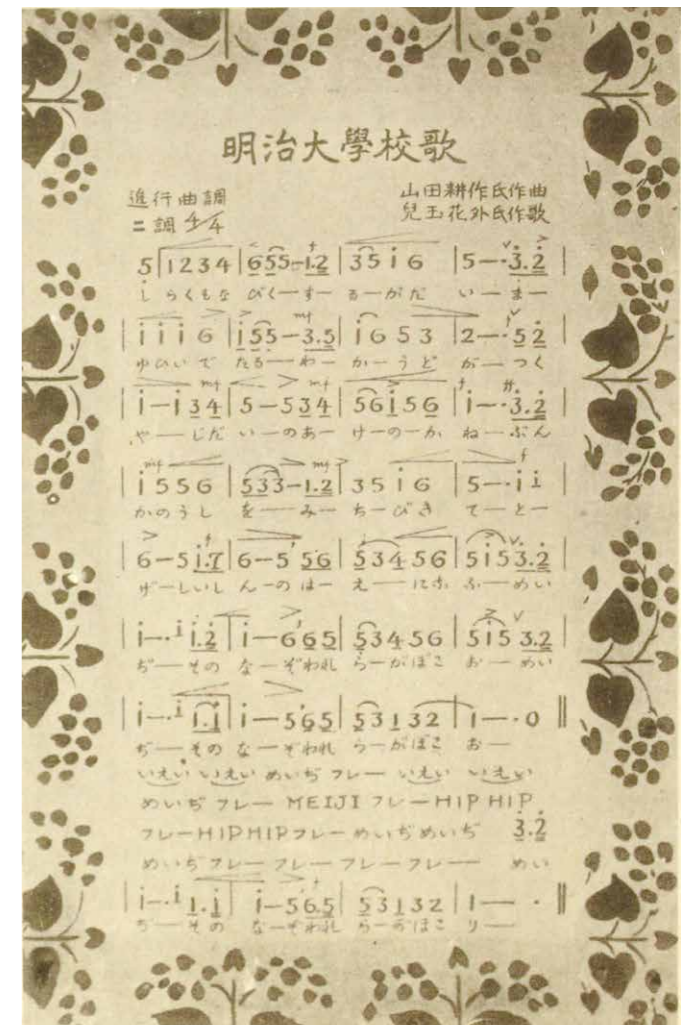 明治大學校歌
進行曲調
山田耕作氏作曲
ニ調 4/4
兒玉花外氏作歌
5|1234|655-1.2|35i6|5-·3.2|
しらくもな びくーすー るーがだ いーまー
|iii6|i55-3.5|i653|2-·52|
ゆひいで たるーわー かーうど がーつく
|i-i34|5-534|56i56|i-·3.2|
やーじだ いーのあー けーのーか ねーぶん
|i556|533-1.2|35i6|5-·ii|
かのうし をーみー ちーびき てーとー
|6-5i.7|6-556|53456|5i53.2|
げーしいし んーのはー えーにふ ふーめい
|i-·i i.2|i-665|53456|5i53.2|
ぢーその なーぞわれ らーがほこ おーめい
|i-·i i.i|i-565|53132|1-·0‖
ぢーその なーぞわれ らーがほこ おー
いえい いえい めいぢ フレー いえい いえい
めいぢ フレー MEIJI フレーHIP HIP
フレーHIPHIPフレーめいぢめいぢ 3.2
めいぢフレー フレー フレーフレー めい
|i-·i 1.i|i-56.5|53132|1-·‖
ぢーその なーぞわれ らーがほこ りー